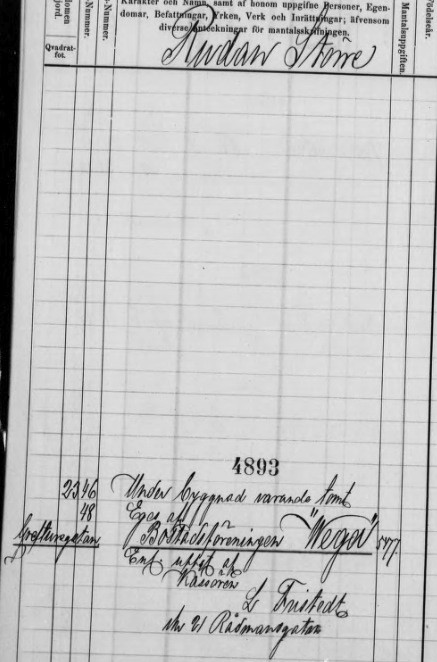 domen
jord.
Qvadrat-
fot.
-Nummer.
-Nummer.
Karakter och Namn, samt af honom uppgifne Personer, Egen-
domar, Befattningar, Yrken, Verk och Inrättningar; äfvensom
diverse Anteckningar för mantalsskrifningen.
Mantalsuppgiften.
Födelseår.
Större
4893
23 46 Under byggnad varande tomt
48 Eges af
Greftureg​atan Bostadsföreningen "Wega" 577.
Enl uppg af
Kassören
L Fristedt
No 21 Rådmansgatan